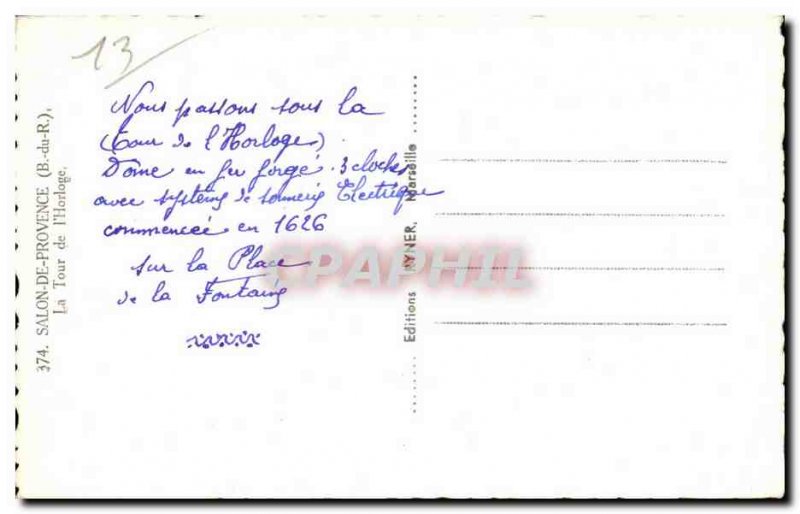 13
Nous passons sous la
(Tour de l'Horloge)
Dôme en fer forgé. 3 cloches
avec système de sonnerie Electrique
commencée en 1626
sur la Place
de la Fontaine
xxxxx
374. SALON-DE-PROVENCE (B.-du-R.).
La Tour de l'Horloge.
Editions RYNER, Marseille
CPAPHIL